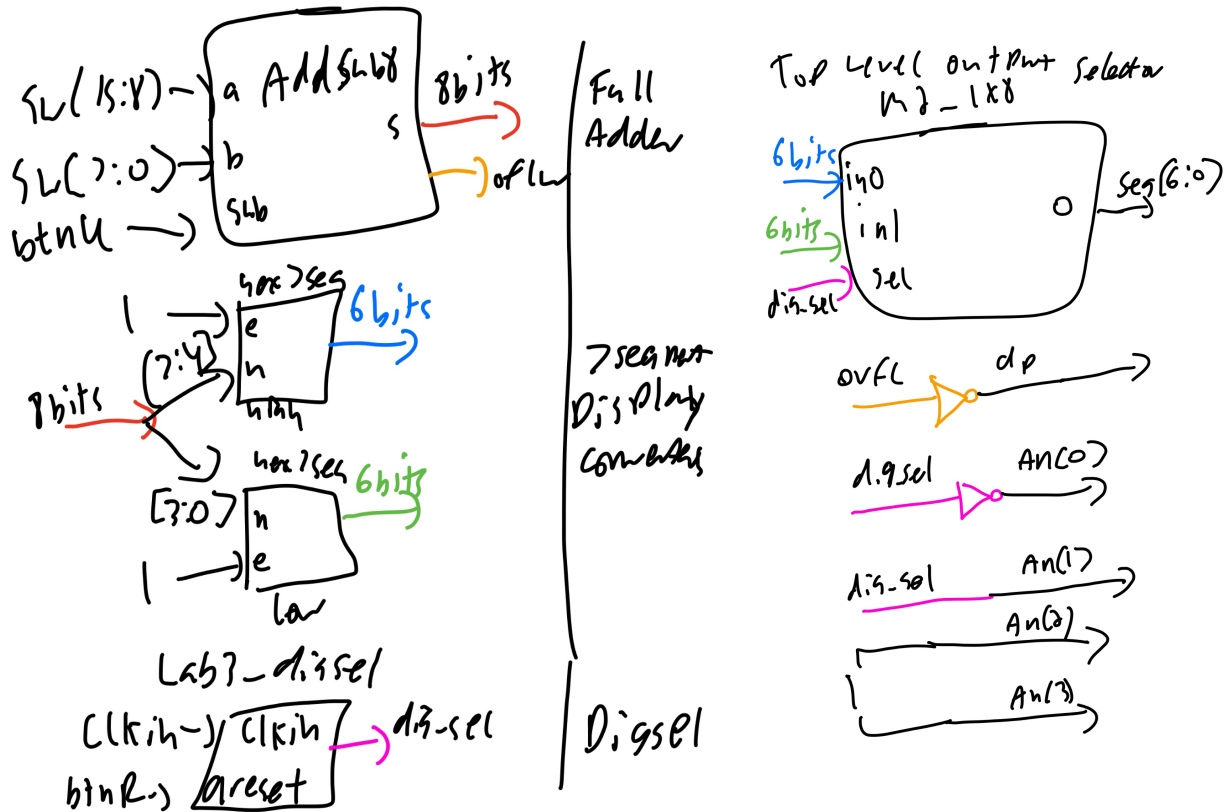 Sw(15:8)
a AddSub8
s
8bits
Sw(7:0)
b
ofLw
btnU
sub
Full
Adder
hex7seg
1
e
6bits
[7:4]
n
8bits
high
hex7seg
6bits
[3:0]
n
1
e
low
7segment
Display
converters
Lab3_digsel
Clkin
Clkin
dig-sel
btnR
areset
Digsel
Top Level output Selector
m2_1x8
6bits
in0
seg(6:0)
O
6bits
in1
dig-sel
sel
ovfl
dp
digsel
An(0)
dig-sel
An(1)
An(2)
1
An(3)